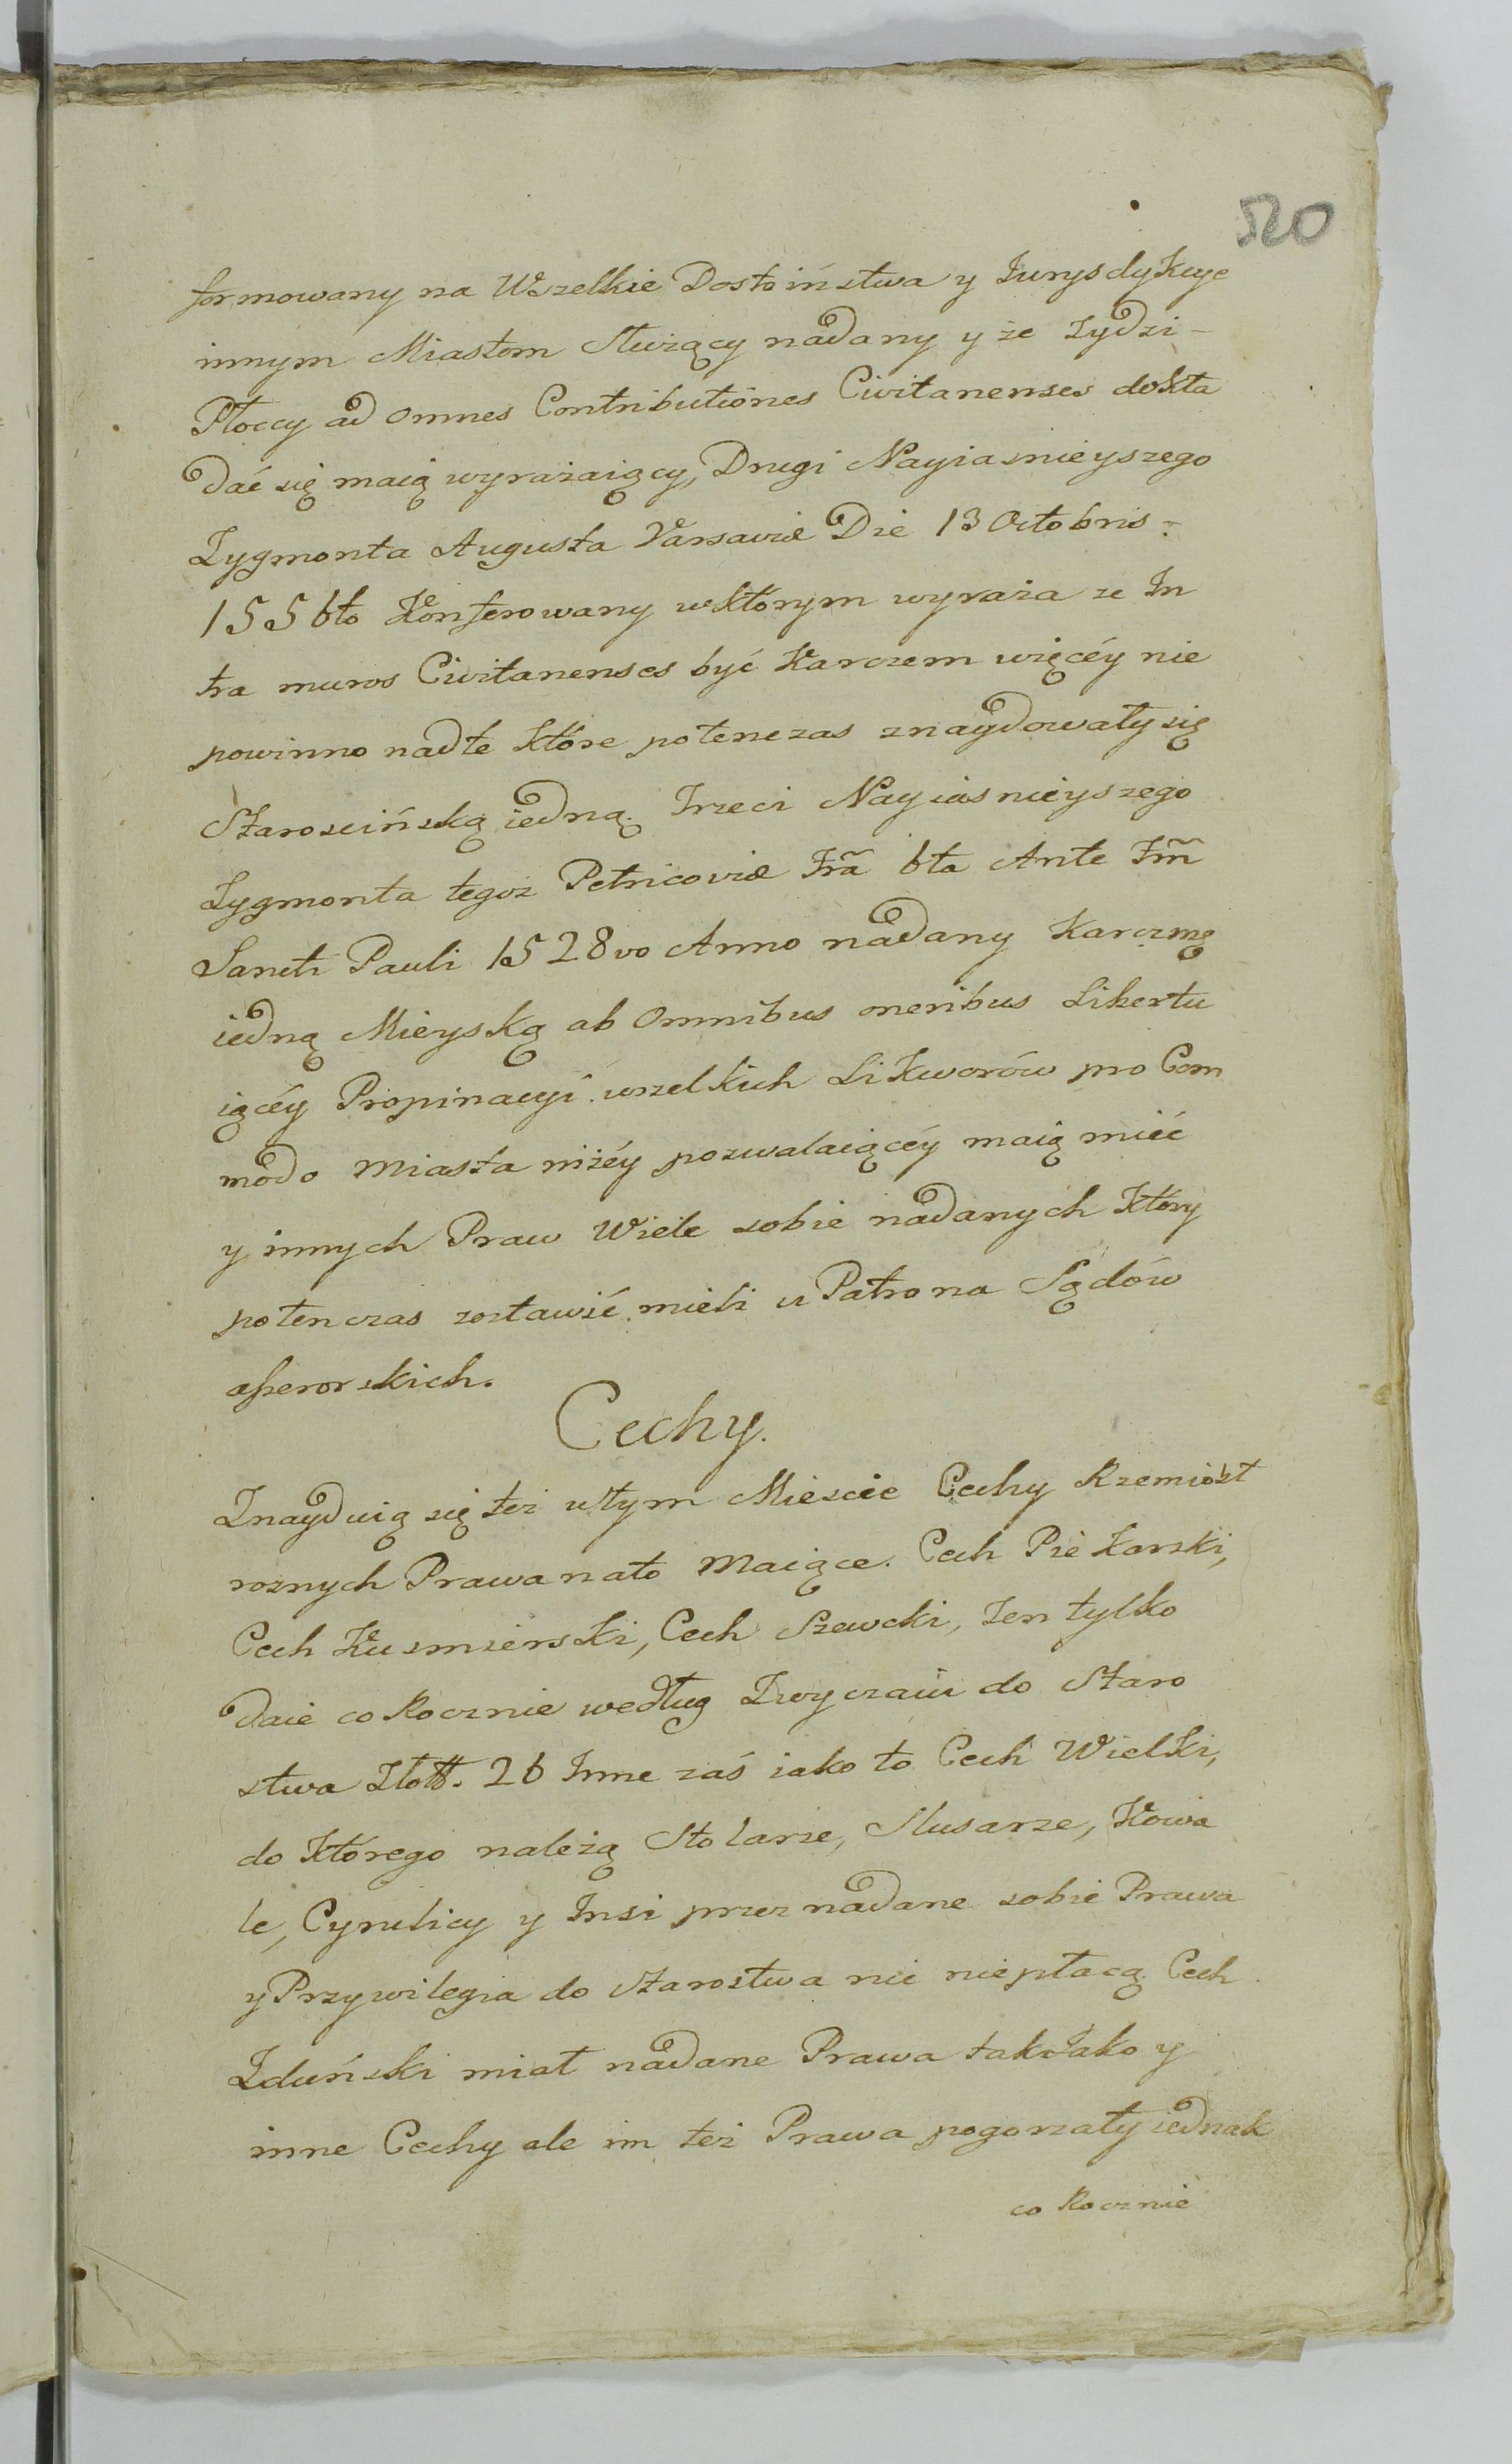 520
formowany na Wszelkie Dostoiństwa y Jurysdykcye
innym Miastom Służący nadany y że Żydzi -
Płoccy ad omnes Contributiones Civitanenses dokła
dać się maią wyrażaiący, Drugi Nayiasnieyszego
Zygmonta Augusta Varsaviæ Die 13 Octobris -
1556to Konferowany w którym wyraża ze In
tra muros Civitanenses być Karczem więcéy nie
powinno nad te które potenczas znaydowały się
Staroscińską iedną. Trzeci Nayiasnieyszego
Zygmonta tegoż Petricoviæ Fr̃a 6ta Ante Fm̃
Sancti Pauli 1528vo Anno nadany Karczmę
iedną Mieyską ab omnibus oneribus Libertu
iącéy Propinacyi wszelkich Likworów pro Com
modo Miasta niżéy pozwalaiącéy maią mieć
y innych Praw Wiele sobie nadanych który
potenczas zostawić mieli u Patrona Sądów
assessorskich.
Cechy.
Znayduią się też w tym Miescie Cechy Rzemiosł
roznych Prawa na to Maiące. Cech Piekarski,
Cech Kusmierski, Cech Szewcki, Ten tylko
daie co Rocznie według Zwyczaiu do Staro
stwa Złott. 26 Inne zaś iako to Cech Wielki,
do którego należą Stolarze, Slusarze, Kowa
le, Cyrulicy y Insi przez nadane sobie Prawa
y Przywilegia do Starostwa nic nie płacą. Cech
Zduński miał nadane Prawa tak Jako y
inne Cechy ale im też Prawa pogorzały iednak
co Rocznie